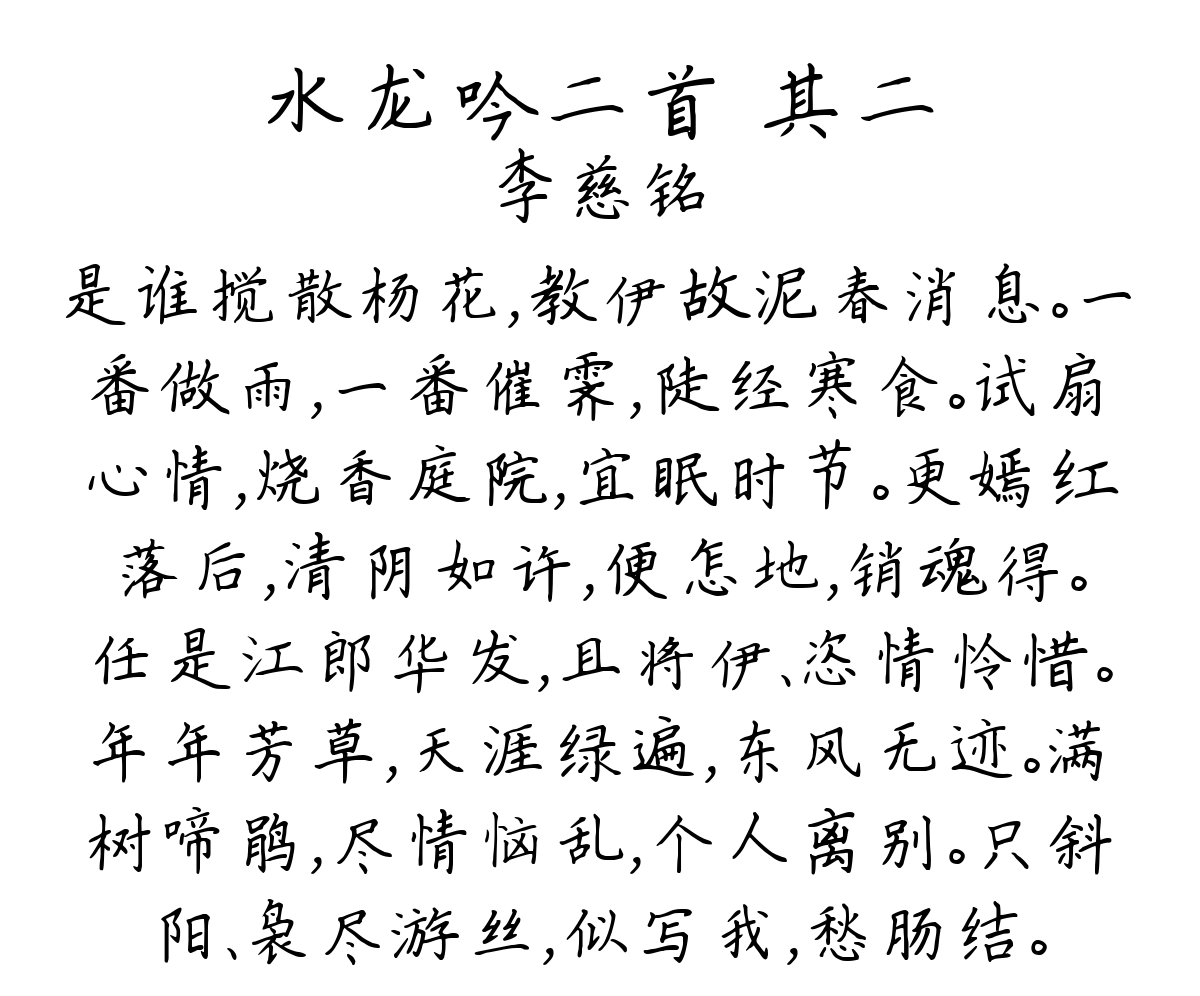 水龙吟二首 其二
李慈铭
是谁搅散杨花,教伊故泥春消息。一
番做雨,一番催霁,陡经寒食。试扇
心情,烧香庭院,宜眠时节。更嫣红
落后,清阴如许,便怎地,销魂得。
任是江郎华发,且将伊、恣情怜惜。
年年芳草,天涯绿遍,东风无迹。满
树啼鹃,尽情恼乱,个人离别。只斜
阳、袅尽游丝,似写我,愁肠结。